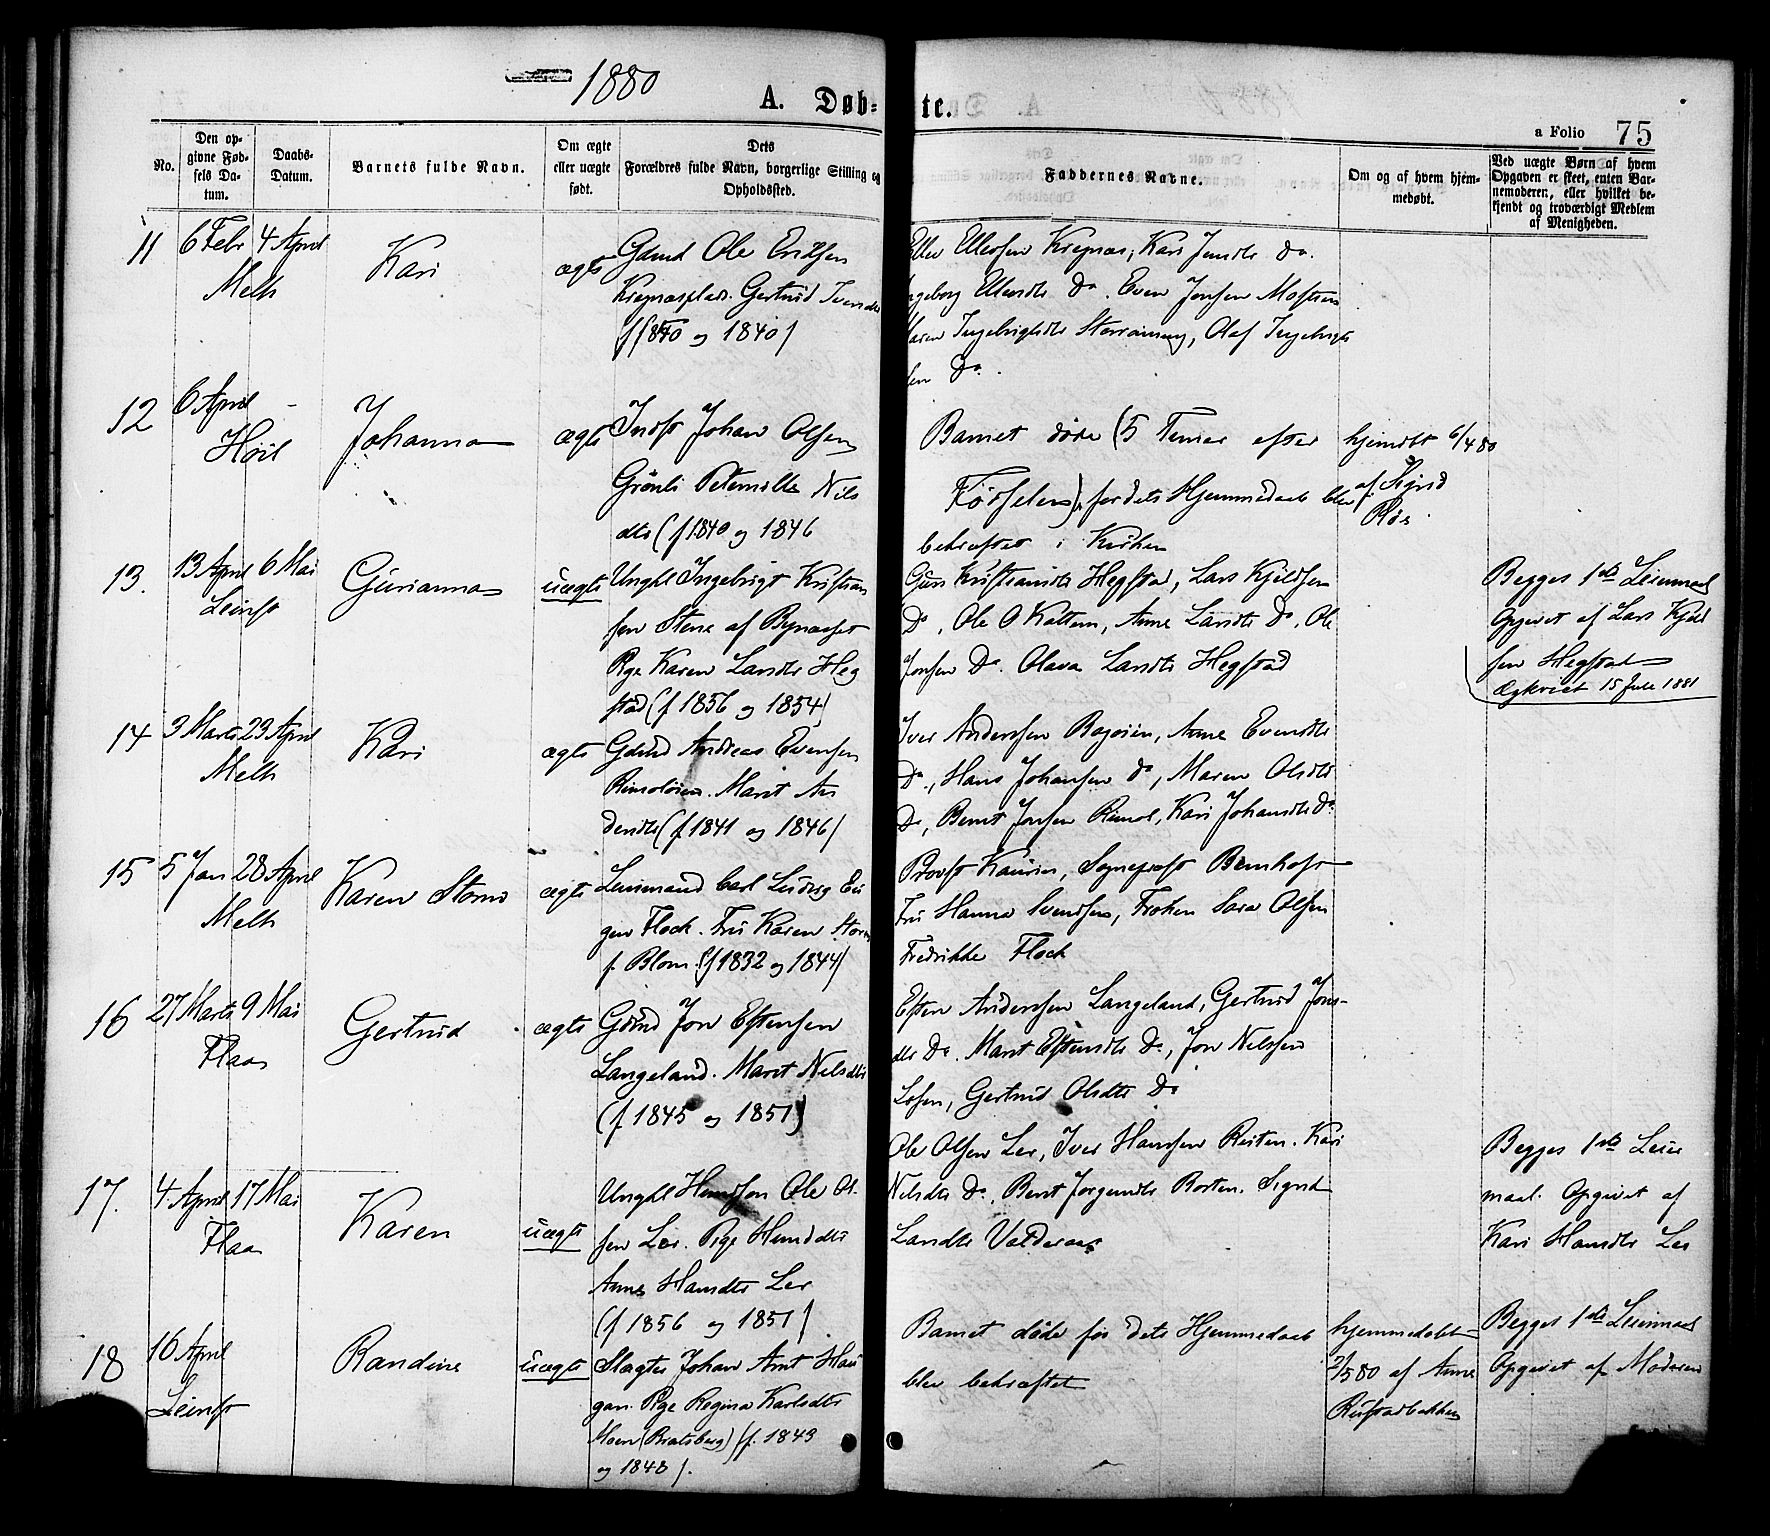 1880
A. Døb-
te.
a Folio 75
No.
Den op-
givne Fød-
sels Da-
tum.
Daabs-
Datum.
Barnets fulde Navn.
Om ægte
eller uægte
født.
Dets
Forældres fulde Navn, borgerlige Stilling og
Opholdssted.
Faddernes Navne.
Om og af hvem hjem-
medøbt.
Ved uægte Børn af hvem
Opgaven er skeet, enten Bar-
nemoderen, eller hvilket be-
kjendt og troværdigt Medlem
af Menigheden.
11
6 Febr
4 April
Melh
Kari
ægte
Gdmd Ole Eriksen
Gertrud Iversdtr
1840 og 1840)
Ellev Ellevsen Krepnæs, Kari Jensdtr Do.
Do. Even Jonsen
Ingebrigtsdtr Olaf Ingebrigt
sen Do.
12
6 April
-
Høil
Johanna
ægte
Indst Johan Olsen
Grønli Petemille Nils
dtr (f 1840 og 1846
Barnet døde (5 Timer efter
Fødselen), før dets Hjemmedaab blev
bekræftet i Kirken
hjemdbt 6/4 80
af Sigrid
Røs.
13.
13 April
6 Mai
Leinst
Gurianna
uægte
Ungkl Ingebrigt Kristian
sen Stene af Bynæsset
Pige Karen Larsdtr Heg
stad (f 1856 og 1854)
Guri Kristiansdtr Hegstad, Lars Kjeldsen
Do, Ole O Kattem, Anne Larsdtr Do, Ole
Jonsen Do. Olava Larsdtr Hegstad
Begges 1ste Leiermaal
Opgivet af Lars Kjeld
sen Hegstad
Ægteviet 15 Juli 1881
14
3 Marts
23 April
Melh
Kari
ægte
Gdmd Andreas Evensen
Rimoløien. Marit An
dersdtr (f. 1841 og 1846)
Iver Anderssen Anne Evensdtr
Do, Hans Johansen Do, Maren Olsdtr
Do, Bernt Jonsen Rimol, Kari Johansdtr Do
15
5 Jan
28 April
Melh
Karen Storm
ægte
Lensmand Carl Ludvig Eu
gen Flock. Fru Karen Storm
f. Blom. (f 1832 og 1844)
Provst Kaurin, Sogneprest Bernhoft
Fru Hanna Svendsen, Frøken Sara Olsen
Fredrikke Flock
16
27 Marts
9 Mai
Flaa
Gertrud
ægte
Gdmd Jon Estensen
Langeland. Marit Nilsdtr
(f. 1845 og 1851)
Esten Anderssen Langeland, Gertrud Jons-
dtr Do. Marit Estensdtr Do, Jon Nilssen
Losen, Gertrud Olsdtr Do
17.
4 April
17 Mai
Flaa
Karen
uægte
Ungkl Ole Ol-
sen Ler. Pige
Anne Hansdtr Ler
(f 1856 og 1851)
Ole Olsen Ler, Iver Hanssen Reiten. Kari
Nilsdtr Do, Berit Jørgensdtr Rosten. Sigrid
Larsdtr Valderaas
Begges 1ste Leier
maal. Opgivet af
Kari Hansdtr Ler
18
16 April
Leinst
Randine
uægte
Slagter Johan Arnt Hau
gan. Pige Regina Karlsdtr
Moen (Bratsberg) (f. 1843
og 1848).
Barnet døde før dets Hjemmedaab
blev bekræftet
hjemmedøbt
2/5 80 af Anne
Rustadbakken
Begges 1ste Leiermaal
Opgivet af Moderen